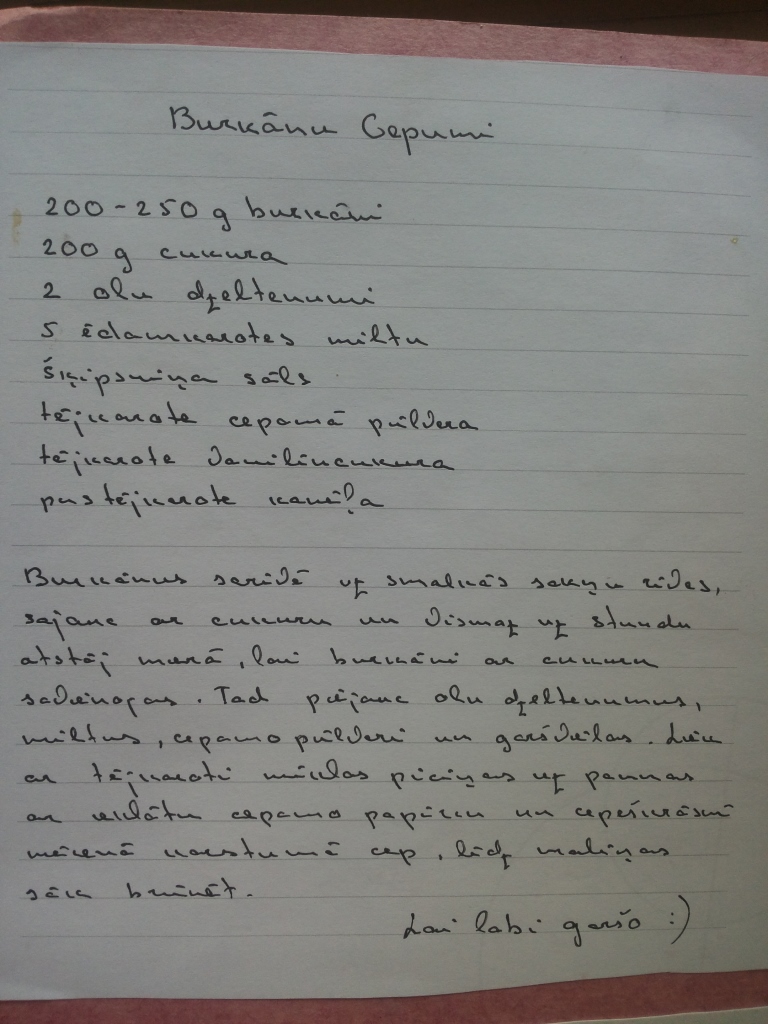 Burkānu Cepumi
200-250 g burkāni
200 g cukura
2 olu dzeltenumi
5 ēdamkarotes miltu
šķipsniņa sāls
tējkarote cepamā pulvera
tējkarote vanilīncukura
pustējkarote kanēļa
Burkānus sarīvē uz smalkās sakņu rīves,
sajauc ar cukuru un vismaz uz stundu
atstāj mierā, lai burkāni ar cukuru
sadraugojas. Tad piejauc olu dzeltenumus,
miltus, cepamo pulveri un garšvielas. Liek
ar tējkaroti mīklas piciņas uz pannas
ar ieklātu cepamo papīru un cepeškrāsnī
mērenā karstumā cep, līdz maliņas
sāk brūnēt.
Lai labi garšo :)